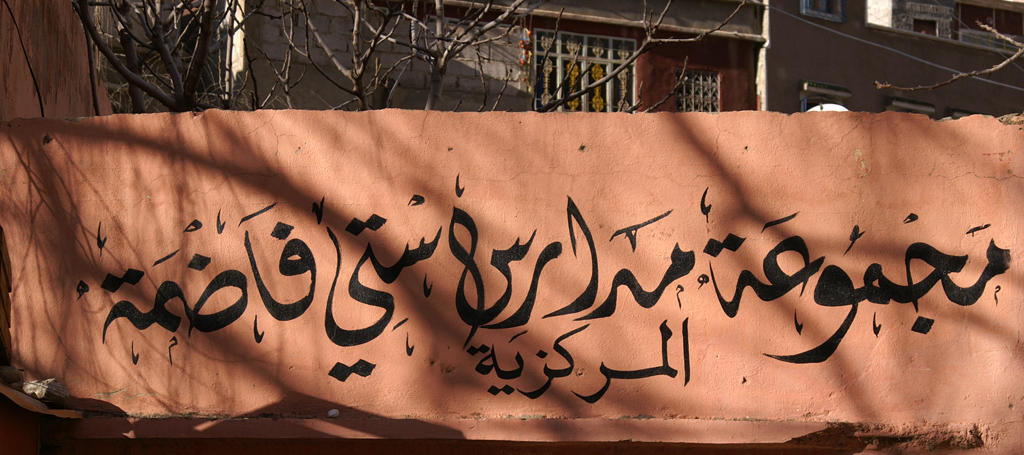 مجموعة مدارس ستي فاضمة
المركزية